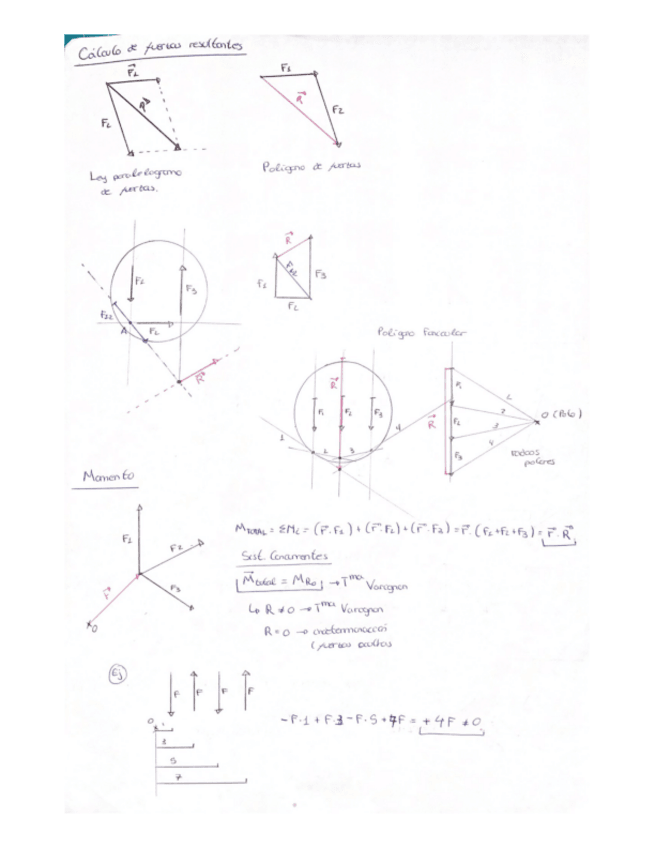 Cálculo de fuerzas resultantes
F1
R
F2
Ley paralelogramo
de fuerzas.
F1
R
F2
Polígono de fuerzas
F1
F3
F12
A
F2
R
R
F1
F12
F3
F2
Polígono Funicular
R
F1
F2
F3
1
2
3
4
R
F1
F2
F3
1
2
3
4
O (Polo)
radios
polares
Momento
F1
F2
F3
r
O
M TOTAL = ΣMi = (r·F1) + (r·F2) + (r·F3) = r·(F1+F2+F3) = r·R
Sist. Concurrentes
M total = MRo → Tma Varignon
↳ R ≠ 0 → Tma Varignon
R = 0 →
(fuerzas ocultas
Ej
F
F
F
F
O
1
5
7
-F·1 + F·3 - F·5 + 7F = +4F ≠ 0